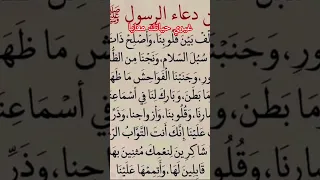 ن دعاء الرسول ﷺ
لِّفْ بَيْنَ قُلُوبِنَا، وَأَصْلِحْ ذَاتَ
سُبُلَ السَّلَامِ، وَنَجِّنَا مِنَ الظُّ
ورِ، وَجَنِّبْنَا الْفَوَاحِشَ مَا
مَا بَطَنَ، وَبَارِكْ لَنَا فِي أَسْمَاعِنَا
صَارِنَا، وَقُلُوبِنَا، وَأَزْوَاجِنَا، وَذُرِّ
عَلَيْنَا إِنَّكَ أَنْتَ التَّوَّابُ الرَّ
شَاكِرِينَ لِنِعَمِكَ مُثْنِينَ بِهَا
قَابِلِينَ لَهَا، وَأَتِمِمْهَا عَلَيْنَا